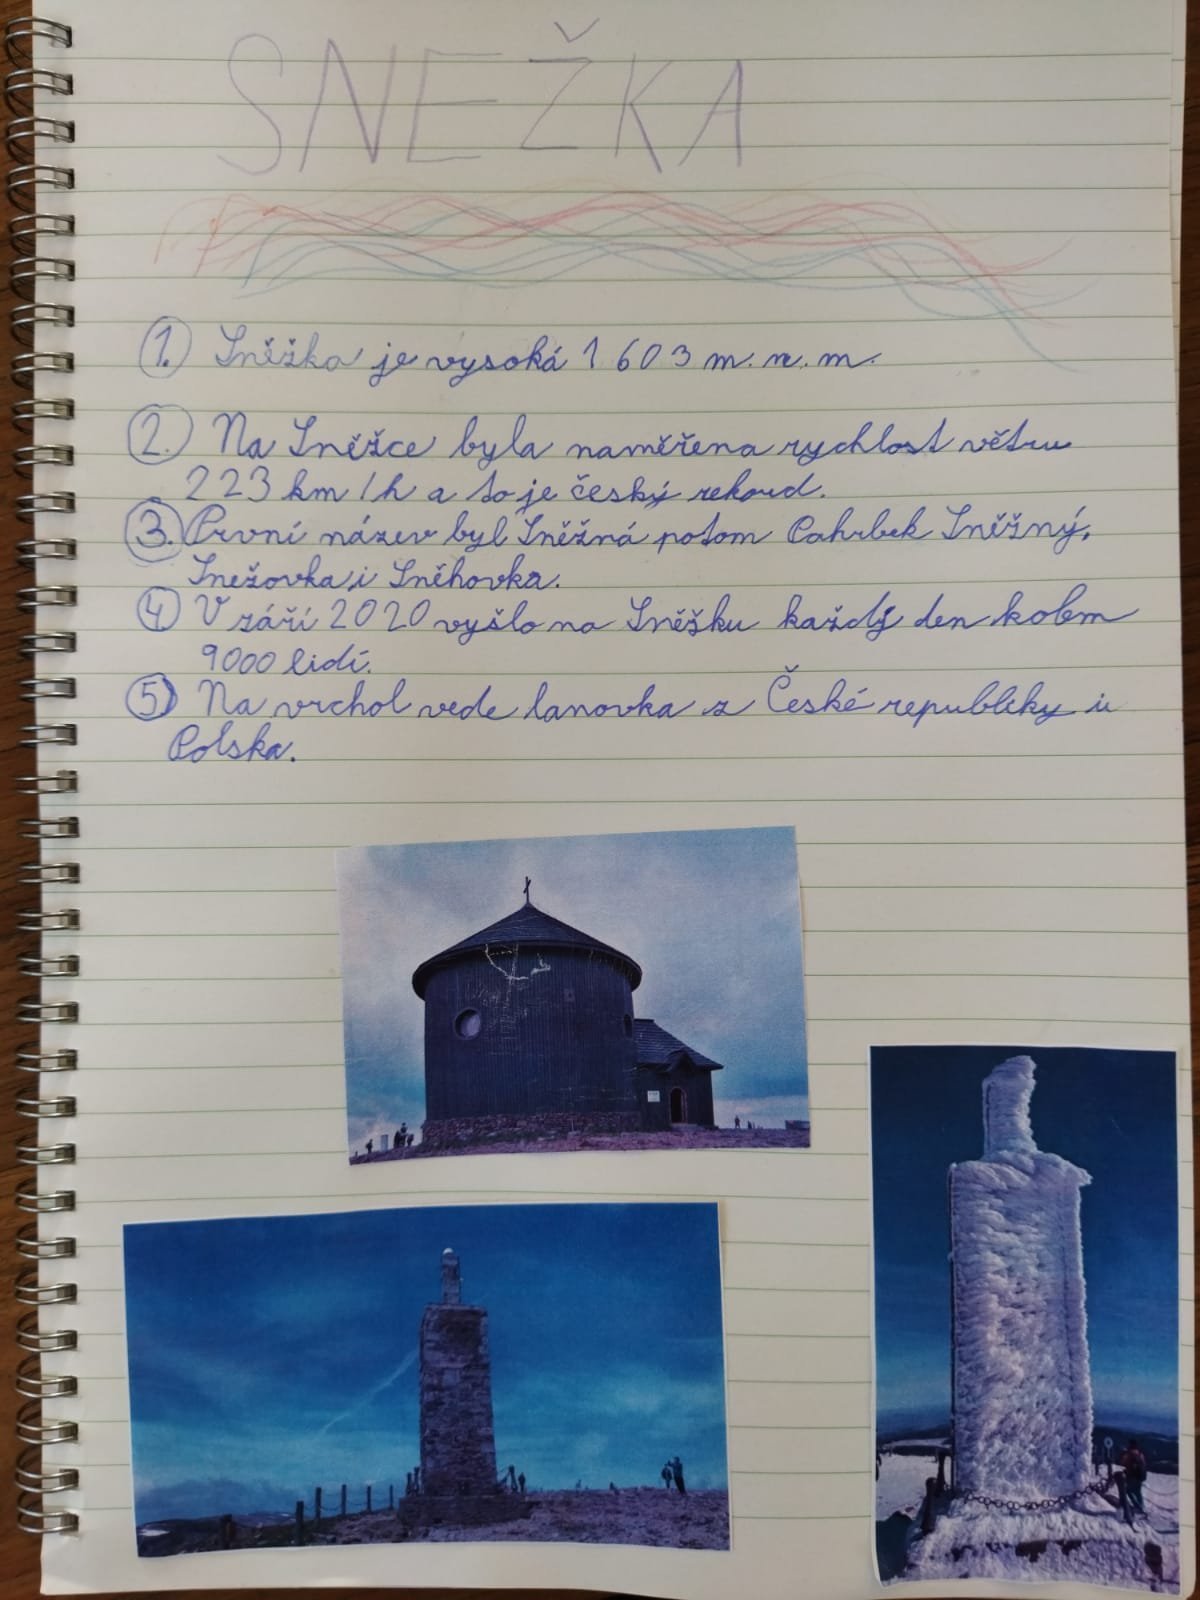 SNEŽKA
1. Sněžka je vysoká 1 603 m. n. m.
2. Na Sněžce byla naměřena rychlost větru
223 km/h a to je český rekord.
3. První název byl Sněžná potom Pahrbek Sněžný,
Snežovka, i Sněhovka.
4) V září 2020 vyšlo na Sněžku každý den kolem
9000 lidí.
5) Na vrchol vede lanovka z České republiky i z
Polska.